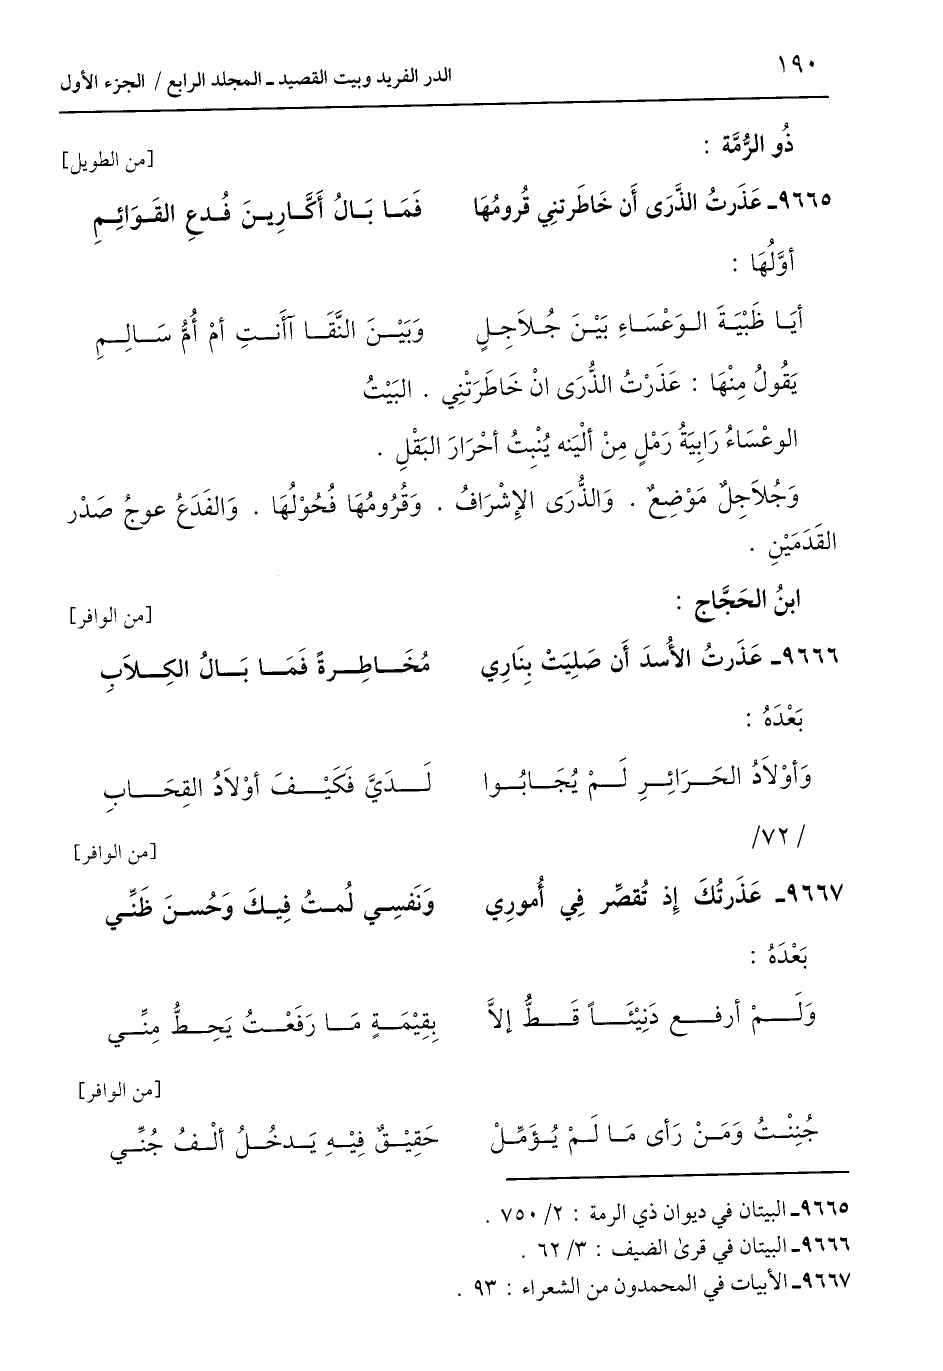 ١٩٠
الدر الفريد وبيت القصيد ـ المجلد الرابع / الجزء الأول
ذُو الرُّمَّة :
[من الطويل]
٩٦٦٥ـ عَذَرتُ الذَّرَى أَن خَاطَرتنِي قُرومُهَا فَمَا بَالُ أَكَّارِينَ فُدعِ القَوَائِمِ
أوَّلُهَا :
أيَا ظَبْيَةَ الوَعْسَاءِ بَيْنَ جُلاَجِلٍ وَبَيْنَ النَّقَا آأَنتِ أمْ أُمُّ سَالِمِ
يَقُولُ مِنْهَا : عَذَرْتُ الذُّرَى انْ خَاطَرَتْنِي . البَيْتُ
الوعْسَاءُ رَابِيَةُ رَمْلٍ مِنْ ألْيَنه يُنْبِتُ أحْرَارَ البَقْلِ .
وَجُلاَجِلٌ مَوْضِعٌ . وَالذُّرَى الإشْرَافُ . وَقُرُومُهَا فُحُوْلُهَا . وَالفَدَعُ عوجُ صَدْر
القَدَمَيْنِ .
ابنُ الحَجَّاج :
[من الوافر]
٩٦٦٦ـ عَذَرتُ الأُسدَ أَن صَلِيَتْ بِنَارِي مُخَاطِرةً فَمَا بَالُ الكِلاَبِ
بَعْدَهُ :
وَأوْلاَدُ الحَرَائِرِ لَمْ يُجَابُوا لَدَيَّ فَكَيْفَ أوْلاَدُ القِحَابِ
/ ٧٢/
[من الوافر]
٩٦٦٧ـ عَذَرتُكَ إِذ تُقصِّر فِي أُمورِي وَنَفسِي لُمتُ فِيكَ وَحُسنَ ظَنِّي
بَعْدَهُ :
وَلَمْ أرفع دَنِيْئَاً قَطُّ إلاَّ بِقِيْمَةِ مَا رَفَعْتُ يَحِطُّ مِنِّي
[من الوافر]
جُنِنْتُ وَمَنْ رَأى مَا لَمْ يُؤَمِّلْ حَقِيْقٌ فِيْهِ يَدخُلُ ألْفُ جُنِّي
٩٦٦٥ـ البيتان في ديوان ذي الرمة : ٢/ ٧٥٠ .
٩٦٦٦ـ البيتان في قرىٰ الضيف : ٣/ ٦٢ .
٩٦٦٧ـ الأبيات في المحمدون من الشعراء : ٩٣ .